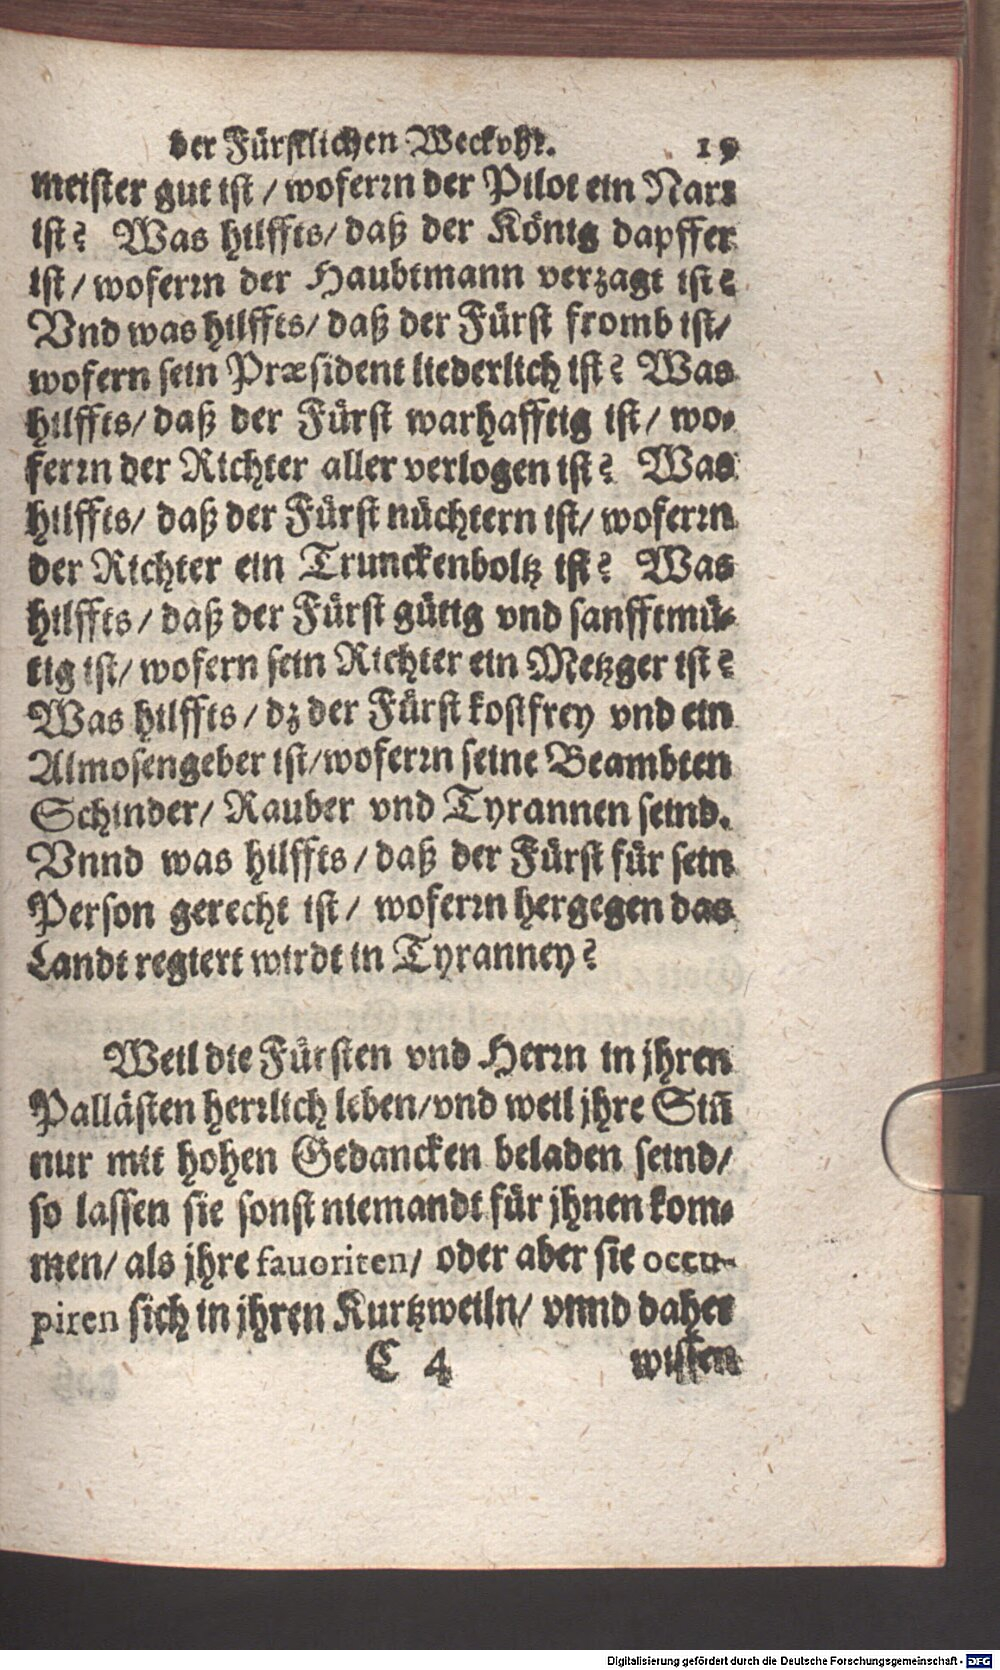 der Fürstlichen Weckvhr. 19
meister gut ist / woferꝛn der Pilot ein Narꝛ
ist? Was hilffts / daß der König dapffer
ist / woferꝛn der Haubtmann verzagt ist?
Vnd was hilffts / daß der Fürst fromb ist /
wofern sein Præsident liederlich ist? Was
hilffts / daß der Fürst warhafftig ist / wo-
ferꝛn der Richter aller verlogen ist? Was
hilffts / daß der Fürst nüchtern ist / woferꝛn
der Richter ein Trunckenboltz ist? Was
hilffts / daß der Fürst gütig vnd sanfftmü-
tig ist / wofern sein Richter ein Metzger ist?
Was hilffts / dz der Fürst kostfrey vnd ein
Almosengeber ist / woferꝛn seine Beambten
Schinder / Rauber vnd Tyrannen seind.
Vnnd was hilffts / daß der Fürst für sein
Person gerecht ist / woferꝛn hergegen das
Landt regiert wirdt in Tyranney?
Weil die Fürsten vnd Herꝛn in jhren
Pallästen herꝛlich leben / vnd weil jhre Siñ
nur mit hohen Gedancken beladen seind /
so lassen sie sonst niemandt für jhnen kom-
men / als jhre fauoriten / oder aber sie occu-
piren sich in jhren Kurtzweiln / vnnd daher
C 4 wissen
Digitalisierung gefördert durch die Deutsche Forschungsgemeinschaft - DFG